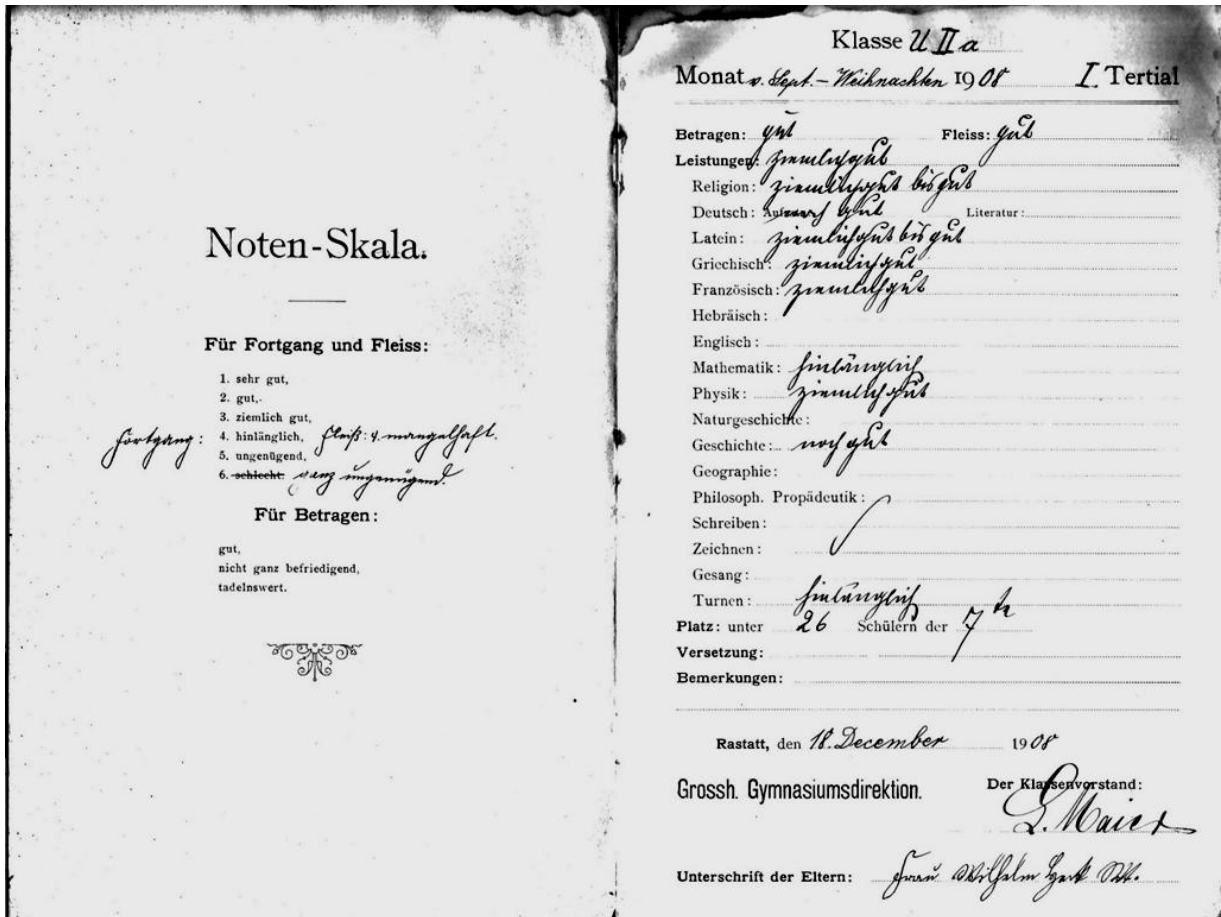 Noten-Skala.
Für Fortgang und Fleiss:
1. sehr gut,
2. gut,
3. ziemlich gut,
Fortgang: 4. hinlänglich, Fleiß: 4. mangelhaft.
5. ungenügend,
6. schlecht. ganz ungenügend.
Für Betragen:
gut,
nicht ganz befriedigend,
tadelnswert.
Klasse U II a
Monat v. Sept. – Weihnachten 1908 I. Tertial
Betragen: gut Fleiss: gut
Leistungen: ziemlich gut
Religion: ziemlich gut bis gut
Deutsch: noch gut Literatur:
Latein: ziemlich gut bis gut
Griechisch: ziemlich gut
Französisch: ziemlich gut
Hebräisch:
Englisch:
Mathematik: hinlänglich
Physik: ziemlich gut
Naturgeschichte:
Geschichte: noch gut
Geographie:
Philosoph. Propädeutik:
Schreiben:
Zeichnen:
Gesang:
Turnen: hinlänglich
Platz: unter 26 Schülern der 7te
Versetzung:
Bemerkungen:
Rastatt, den 18. December 1908
Grossh. Gymnasiumsdirektion. Der Klassenvorstand:
L. Maier
Unterschrift der Eltern: Frau Wilhelm